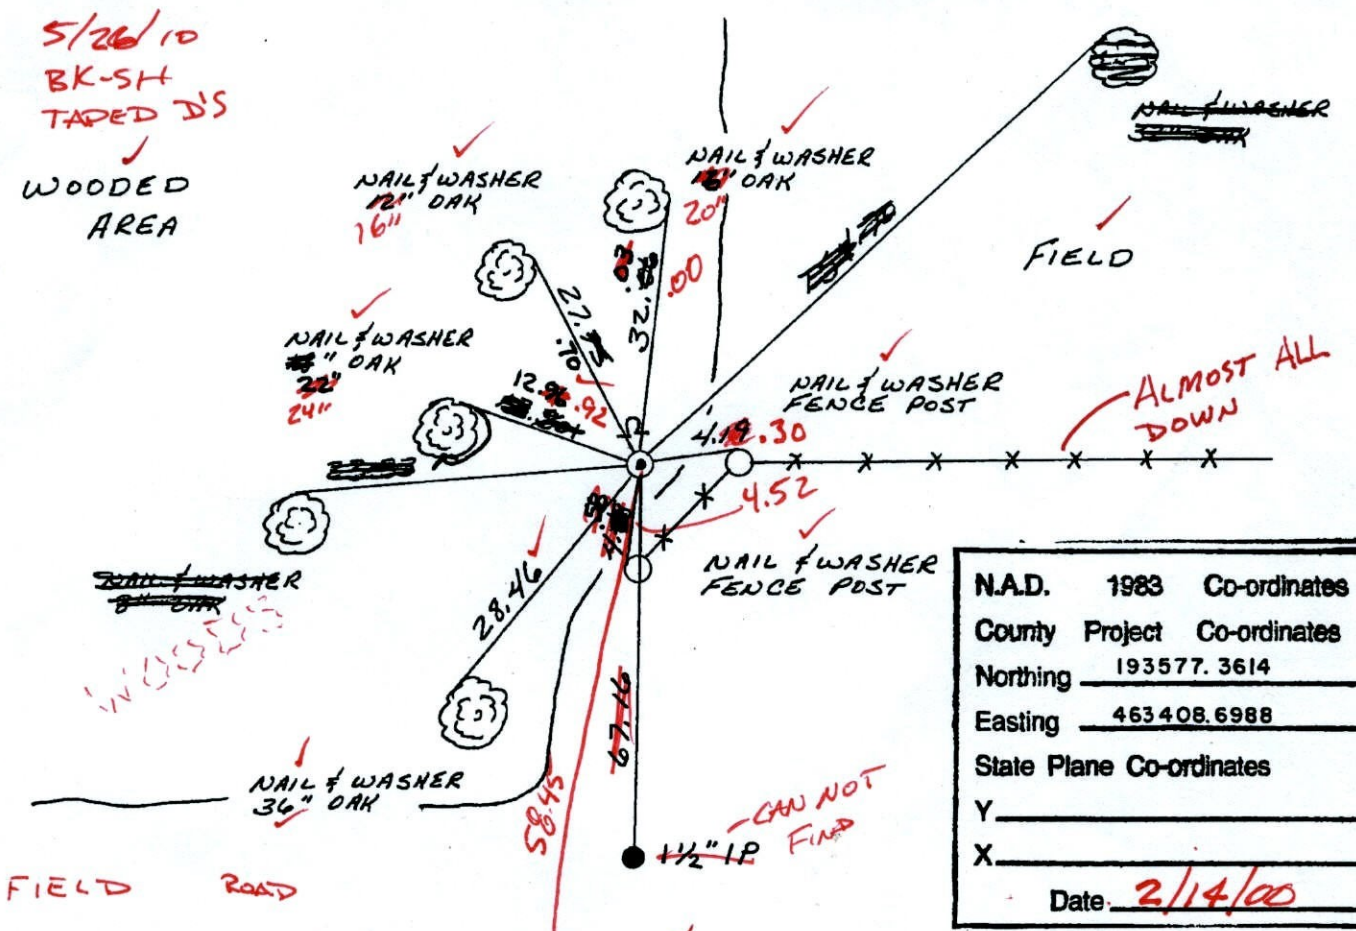 5/26/10
BK-SH
TAPED D'S
WOODED
AREA
NAIL & WASHER
12" OAK
16"
NAIL & WASHER
OAK
20"
NAIL & WASHER
FIELD
NAIL & WASHER
" OAK
22"
24"
27.
.70
32.
.00
12.96
.92
NAIL & WASHER
FENCE POST
4.19
.30
ALMOST ALL
DOWN
4.52
NAIL & WASHER
FENCE POST
NAIL & WASHER
8" OAK
WOODS
28.46
67.16
58.45
NAIL & WASHER
36" OAK
1 1/2" IP
CAN NOT
FIND
FIELD ROAD
N.A.D. 1983 Co-ordinates
County Project Co-ordinates
Northing 193577.3614
Easting 463408.6988
State Plane Co-ordinates
Y
X
Date 2/14/00